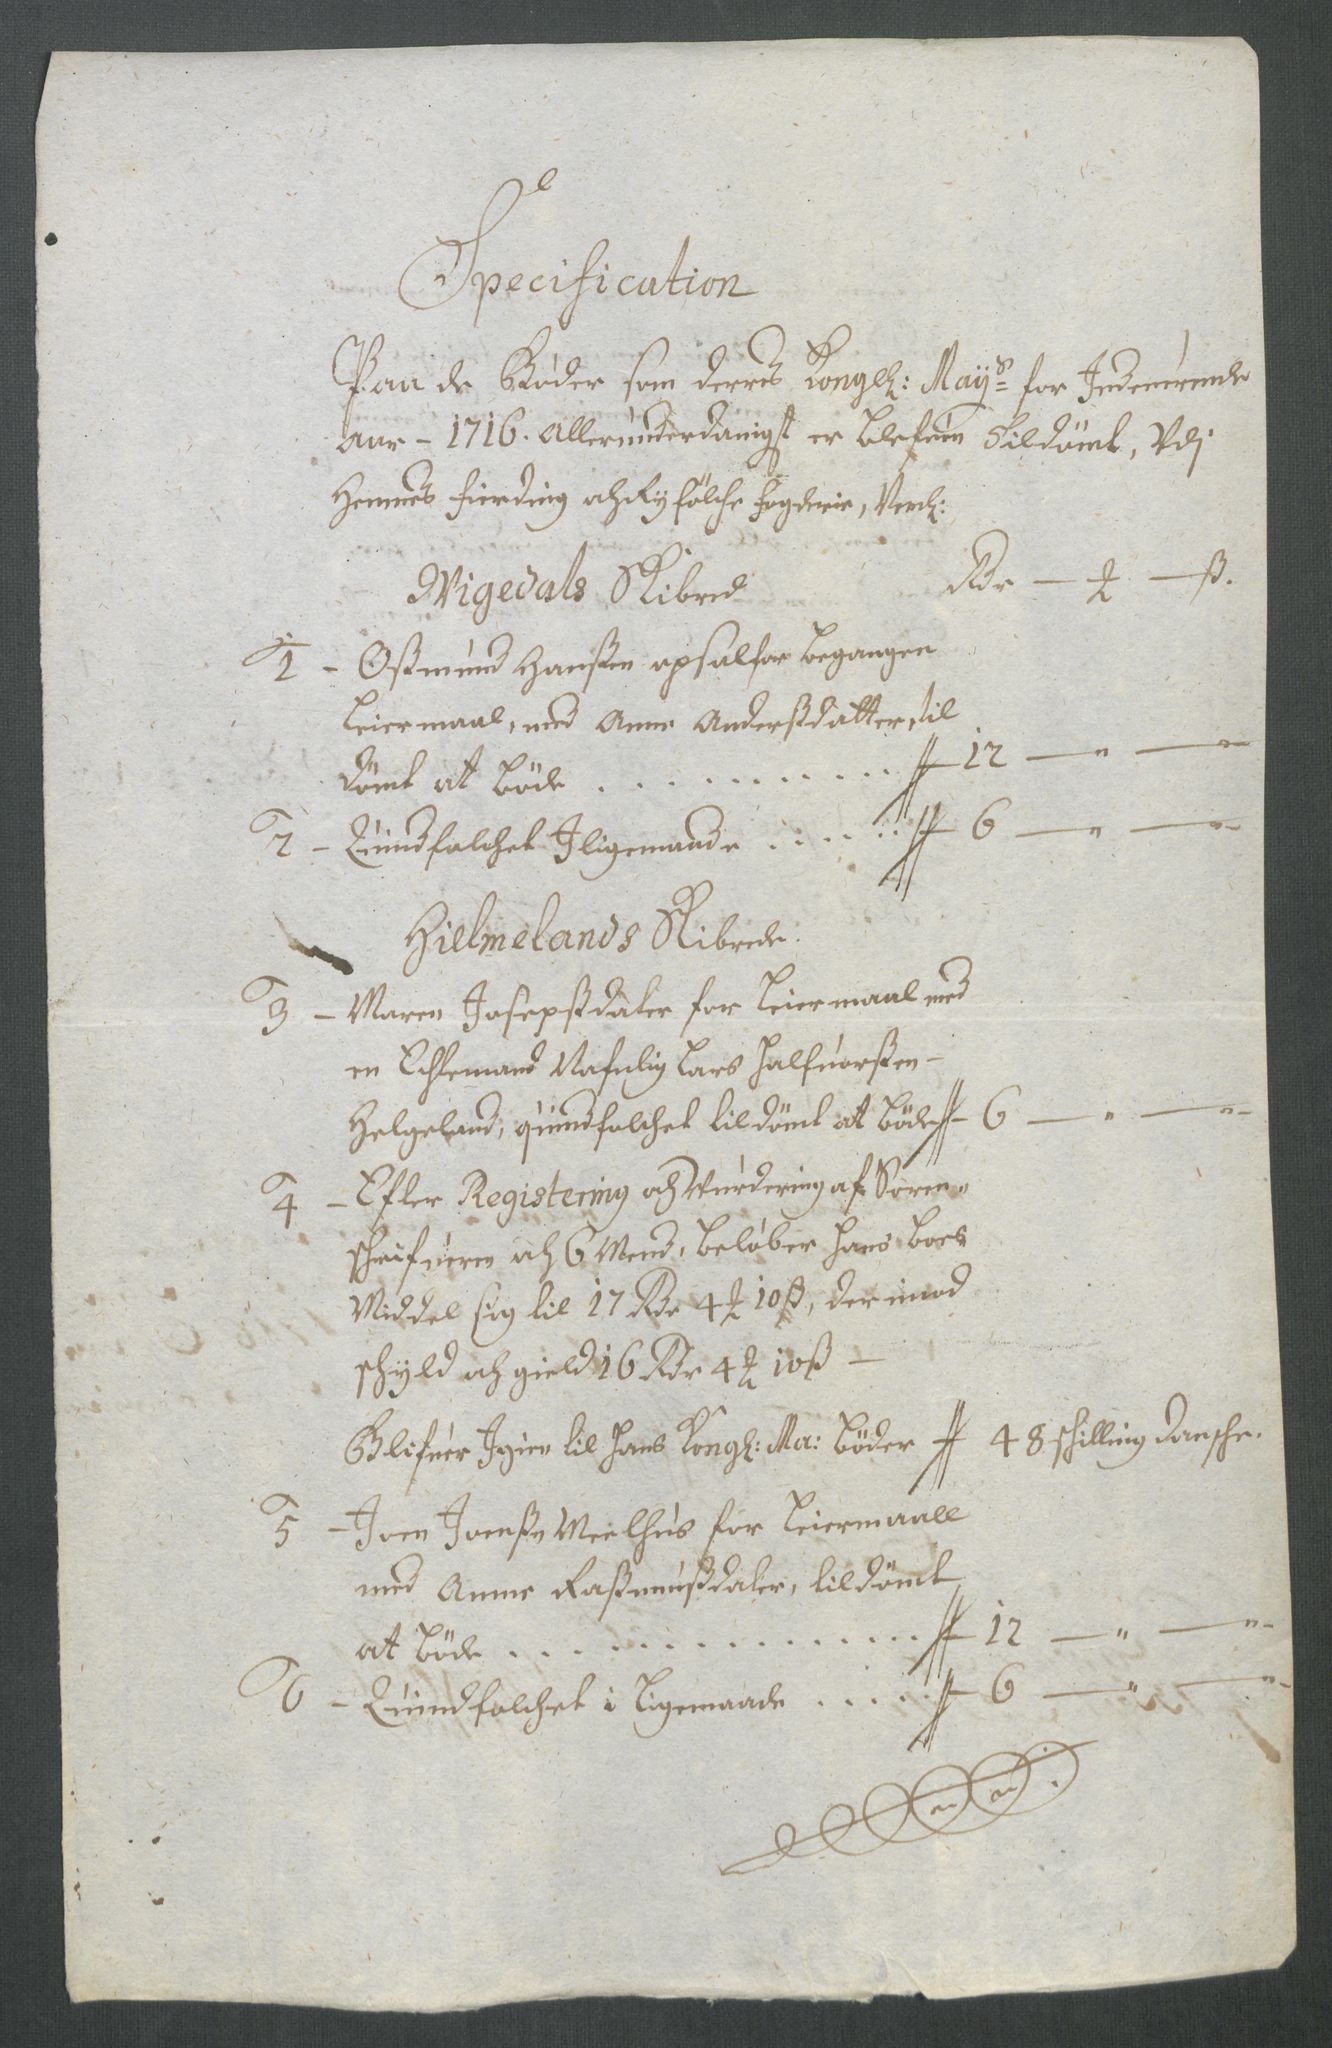 Specification
Paa de Bøder som derres Kongl: Mays for Indeværende
aar - 1716. allerunderdanigst er blefuen tildømt, Udj
Hemnes fierding och Ryfølche fogderie, Nembl:
Wigedals Skibred Rdr — — ß.
1 - Oßmund Hanßen opsal for begangen
Leiermaal, med Anne Anderßdatter, til
dømt at bøde . . . . . . . . . . . 12 — " — "
2 - Quindfolchet Iligemaade . . . . . . 6 — " — "
Hielmelands Skibrede.
3 - Maren Josepßdater for Leiermaal med
en Echtemand Nafnlig Lars Halfuorßen -
Helgeland, quindfolchet tildømt at bøde 6 — " — "
4 - Efter Registering och Vurdering af Soren-
schrifueren och 6 Mend, beløber Hans Boes
Middel sig til 17 Rdr 4 10 ß, der imod
schyld och gield 16 Rdr 4 10 ß -
Blifuer Igien til Hans Kongl: Ma: bøder 48 schilling Dansche.
5 - Joen Joenßen Meelhus for Leiermaall
med Anne Raßmusdater, tildømt
at bøde . . . . . . . . . . . . . . 12 — " — "
6 - Quindfolchet i Ligemaade . . . . . 6 — " — "